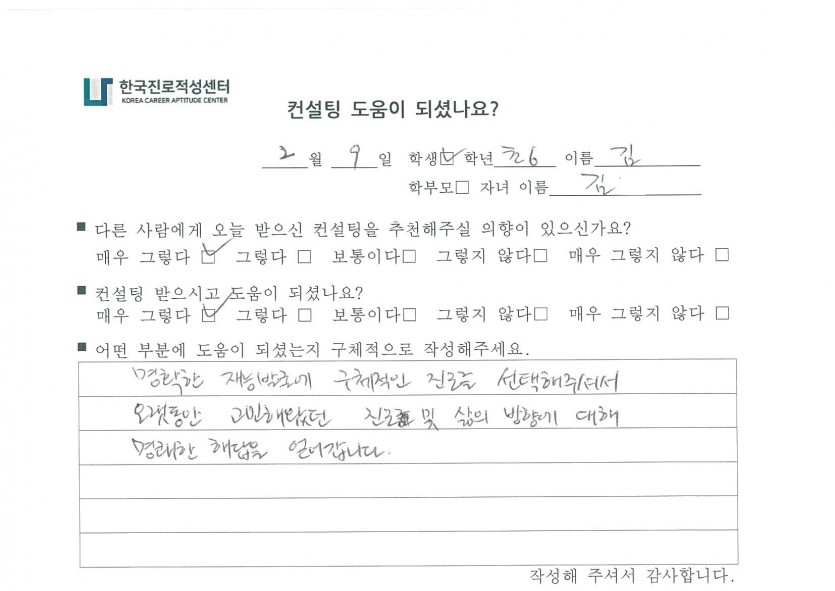 한국진로적성센터
KOREA CAREER APTITUDE CENTER
컨설팅 도움이 되셨나요?
2 월 9 일 학생☑ 학년 초6 이름 김
학부모□ 자녀 이름 김
■ 다른 사람에게 오늘 받으신 컨설팅을 추천해주실 의향이 있으신가요?
매우 그렇다 ☑ 그렇다 □ 보통이다□ 그렇지 않다□ 매우 그렇지 않다 □
■ 컨설팅 받으시고 도움이 되셨나요?
매우 그렇다 ☑ 그렇다 □ 보통이다□ 그렇지 않다□ 매우 그렇지 않다 □
■ 어떤 부분에 도움이 되셨는지 구체적으로 작성해주세요.
구체적인 진로를 선택해주셔서
오랫동안 고민해왔던 진로 및 삶의 방향에 대해
명쾌한 해답을 얻어갑니다.
작성해 주셔서 감사합니다.